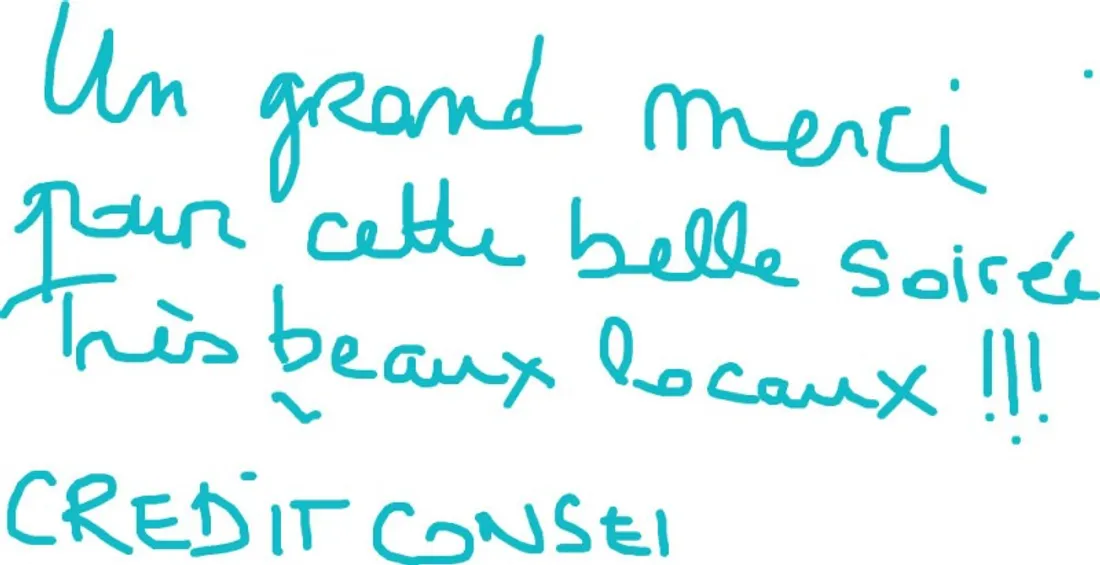 Un grand merci
pour cette belle soirée
Très beaux locaux !!!
CREDIT CONSEI